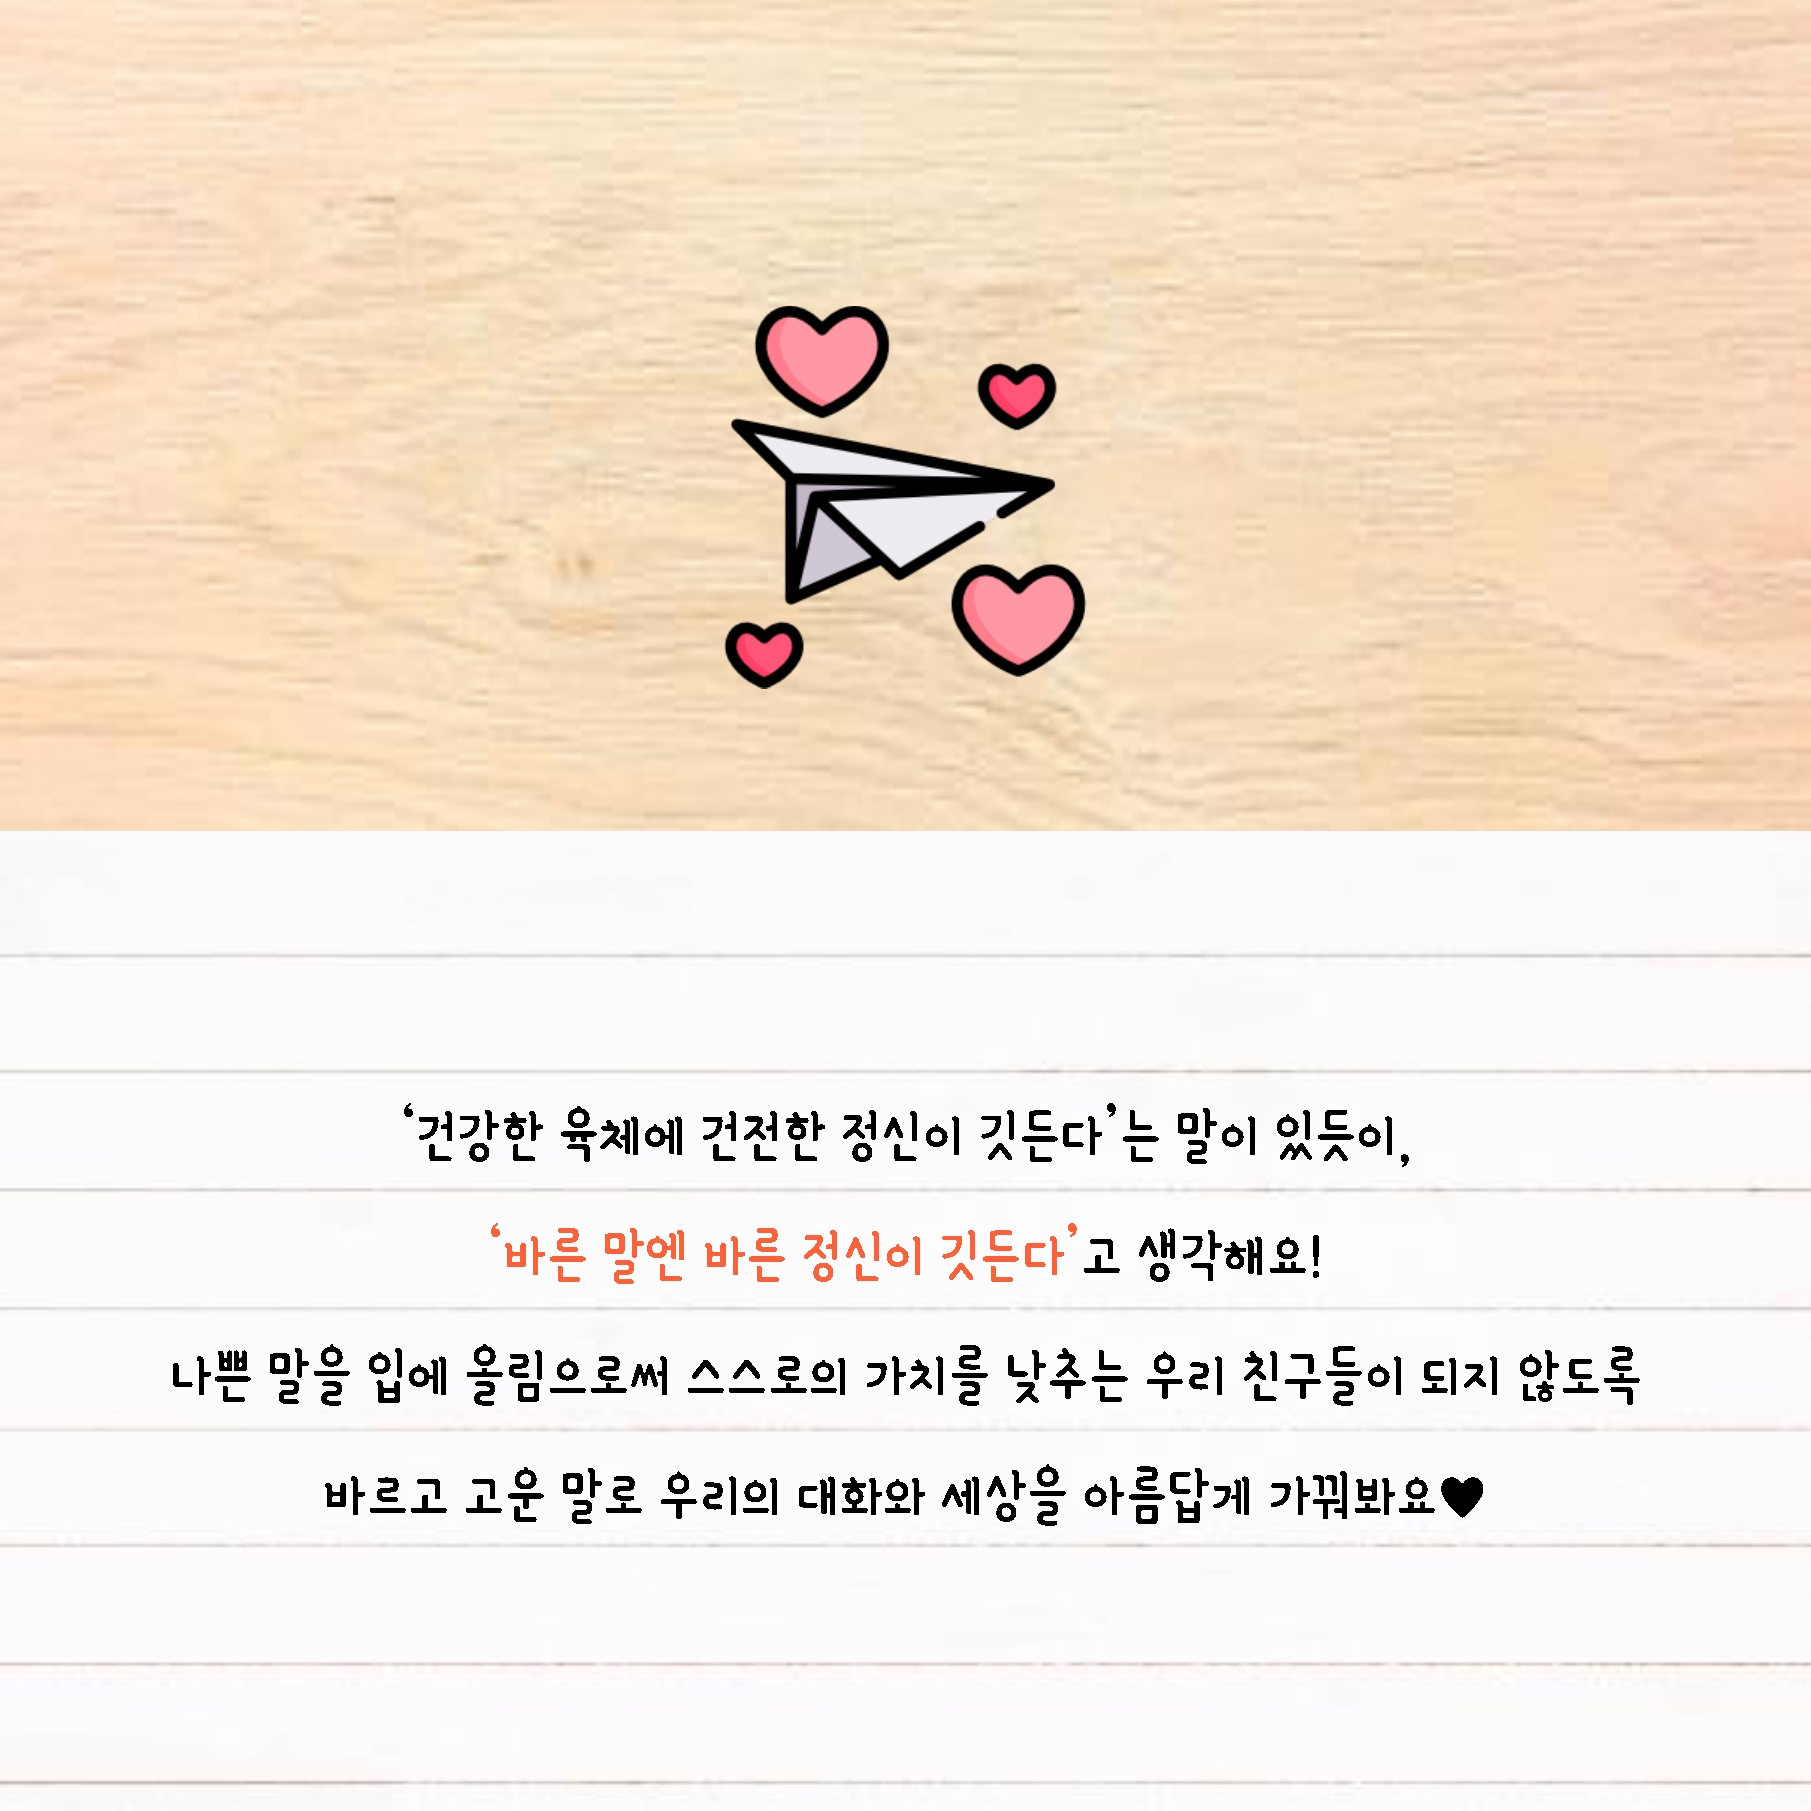 ‘건강한 육체에 건전한 정신이 깃든다’는 말이 있듯이,
‘바른 말엔 바른 정신이 깃든다’고 생각해요!
나쁜 말을 입에 올림으로써 스스로의 가치를 낮추는 우리 친구들이 되지 않도록
바르고 고운 말로 우리의 대화와 세상을 아름답게 가꿔봐요♥